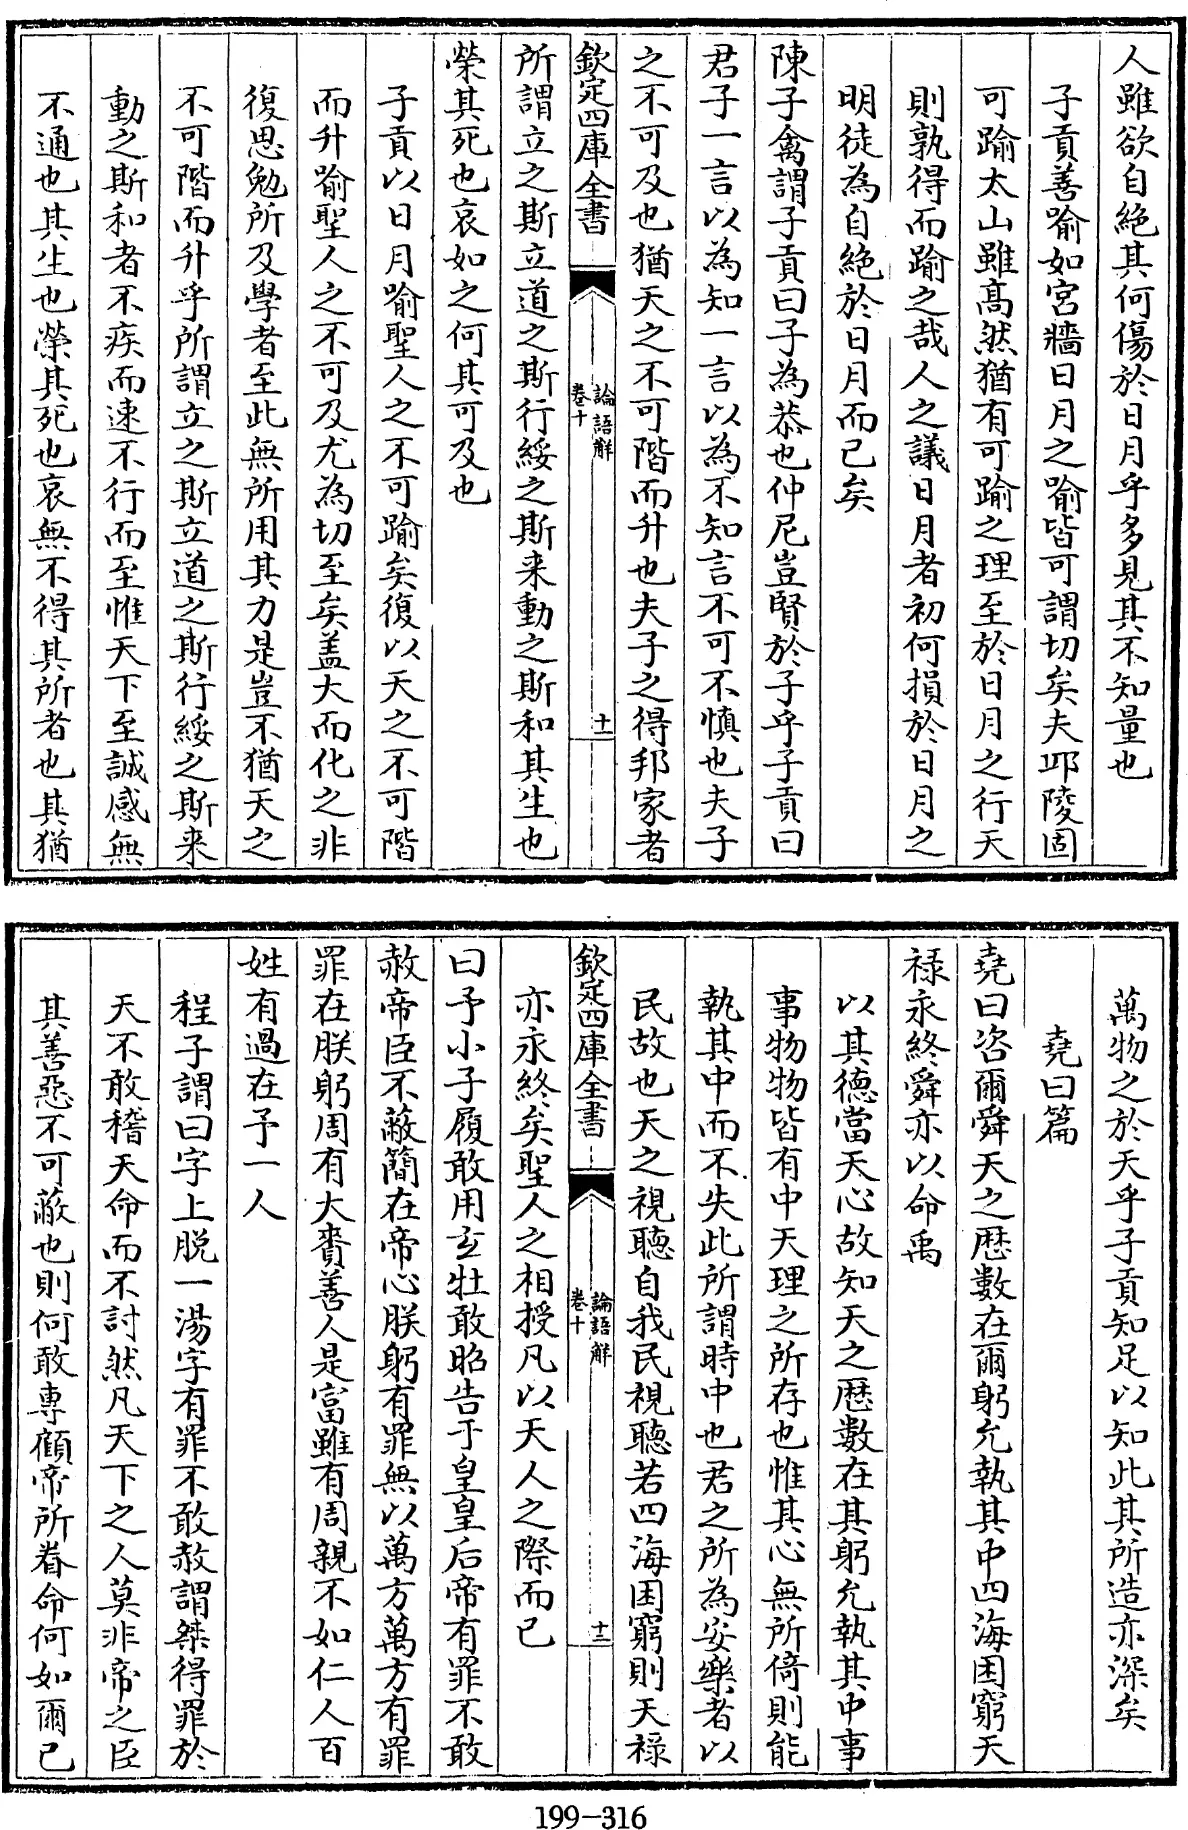 人雖欲自絶其何傷於日月乎多見其不知量也
子貢善喻如宮牆日月之喻皆可謂切矣夫邱陵固
可踰太山雖高然猶有可踰之理至於日月之行天
則孰得而踰之哉人之議日月者初何損於日月之
明徒為自絶於日月而已矣
陳子禽謂子貢曰子為恭也仲尼豈賢於子乎子貢曰
君子一言以為知一言以為不知言不可不慎也夫子
之不可及也猶天之不可階而升也夫子之得邦家者
欽定四庫全書
論語解
卷十
十一
所謂立之斯立道之斯行綏之斯来動之斯和其生也
榮其死也哀如之何其可及也
子貢以日月喻聖人之不可踰矣復以天之不可階
而升喻聖人之不可及尤為切至矣盖大而化之非
復思勉所及學者至此無所用其力是豈不猶天之
不可階而升乎所謂立之斯立道之斯行綏之斯来
動之斯和者不疾而速不行而至惟天下至誠感無
不通也其生也榮其死也哀無不得其所者也其猶
萬物之於天乎子貢知足以知此其所造亦深矣
堯曰篇
堯曰咨爾舜天之厯數在爾躬允執其中四海困窮天
禄永終舜亦以命禹
以其德當天心故知天之厯數在其躬允執其中事
事物物皆有中天理之所存也惟其心無所倚則能
執其中而不失此所謂時中也君之所為安樂者以
民故也天之視聽自我民視聽若四海困窮則天禄
欽定四庫全書
論語解
卷十
十二
亦永終矣聖人之相授凡以天人之際而已
曰予小子履敢用玄牡敢昭告于皇皇后帝有罪不敢
赦帝臣不蔽簡在帝心朕躬有罪無以萬方萬方有罪
罪在朕躬周有大賚善人是富雖有周親不如仁人百
姓有過在予一人
程子謂曰字上脱一湯字有罪不敢赦謂桀得罪於
天不敢稽天命而不討然凡天下之人莫非帝之臣
其善惡不可蔽也則何敢專顧帝所眷命何如爾已
199-316